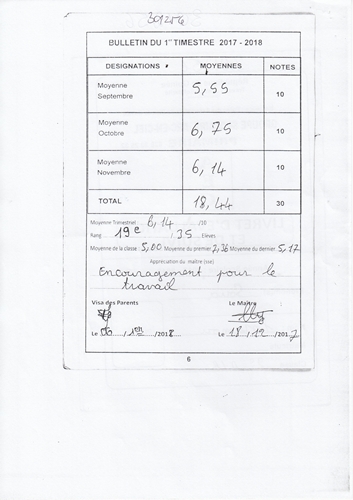 BULLETIN DU 1er TIMESTRE 2017 - 2018
DESIGNATIONS MOYENNES NOTES
Moyenne Septembre 5,55 10
Moyenne Octobre 6,75 10
Moyenne Novembre 6,14 10
TOTAL 18,44 30
Moyenne Trimestriel : 6,14 /10
Rang 19e /35 Elèves
Moyenne de la classe : 5,00 Moyenne du premier 7,36 Moyenne du dernier 5,17
Appréciation du maître (sse)
Encouragement pour le
travail
Visa des Parents Le Maître
Le /1er/2018 Le 18/12/2017
6